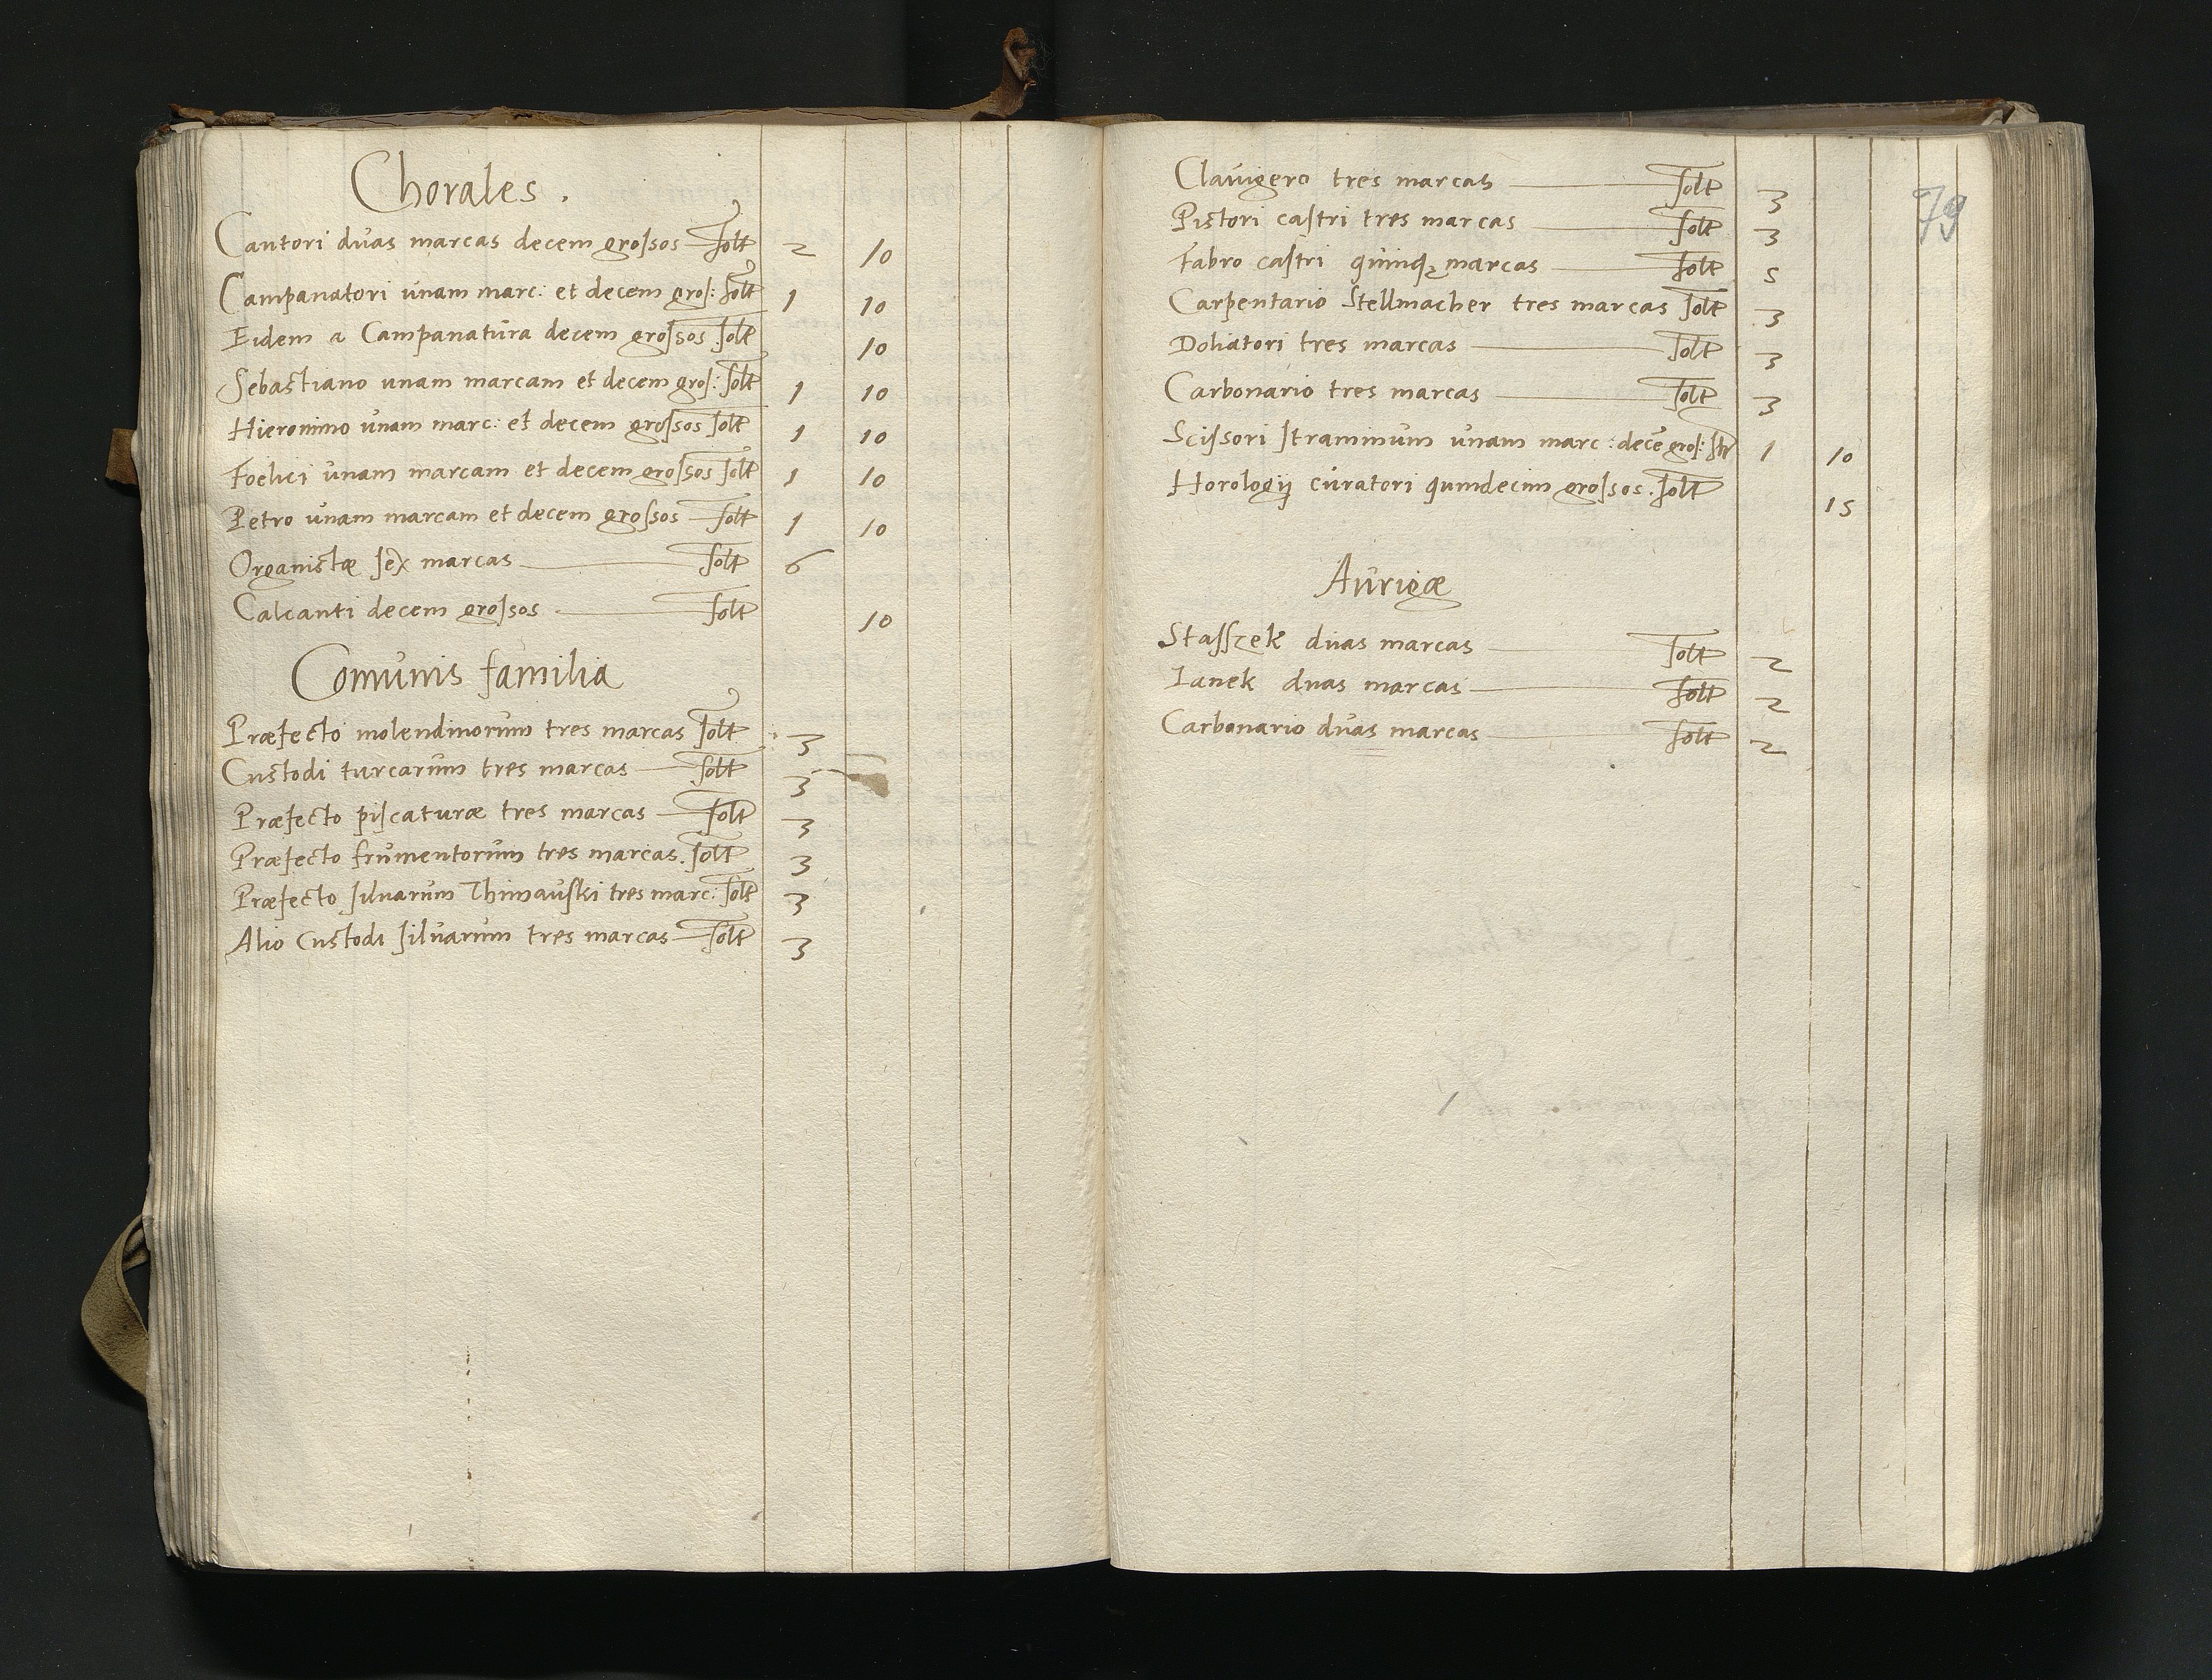 Chorales.
Cantori duas marcas decem grossos solt 2 10
Campanatori unam marc: et decem gros: solt 1 10
Eidem a Campanatura decem grossos solt 10
Sebastiano unam marcam et decem gros: solt 1 10
Hieronimo unam marc: et decem grossos solt 1 10
Foelici unam marcam et decem grossos solt 1 10
Petro unam marcam et decem grossos solt 1 10
Organistæ sex marcas solt 6
Calcanti decem grossos solt 10
Comunis familia
Præfecto molendinorum tres marcas solt 3
Custodi turcarum tres marcas solt 3
Præfecto piscaturæ tres marcas solt 3
Præfecto frumentorum tres marcas. solt 3
Præfecto siluarum Thimauski tres marc: solt 3
Alio Custodi siluarum tres marcas solt 3
79
Clauigero tres marcas solt 3
Pistori castri tres marcas solt 3
Fabro castri quinq; marcas solt 5
Carpentario Stellmacher tres marcas solt 3
Doliatori tres marcas solt 3
Carbonario tres marcas solt 3
Scissori straminum unam marc: decē gros: slt 1 10
Horologij curatori quindecim grossos. solt 15
Aurigæ
Stasszek duas marcas solt 2
Ianek duas marcas solt 2
Carbonario duas marcas solt 2